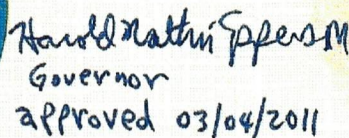 Harold Mathu Epperson
Governor
approved 03/04/2011